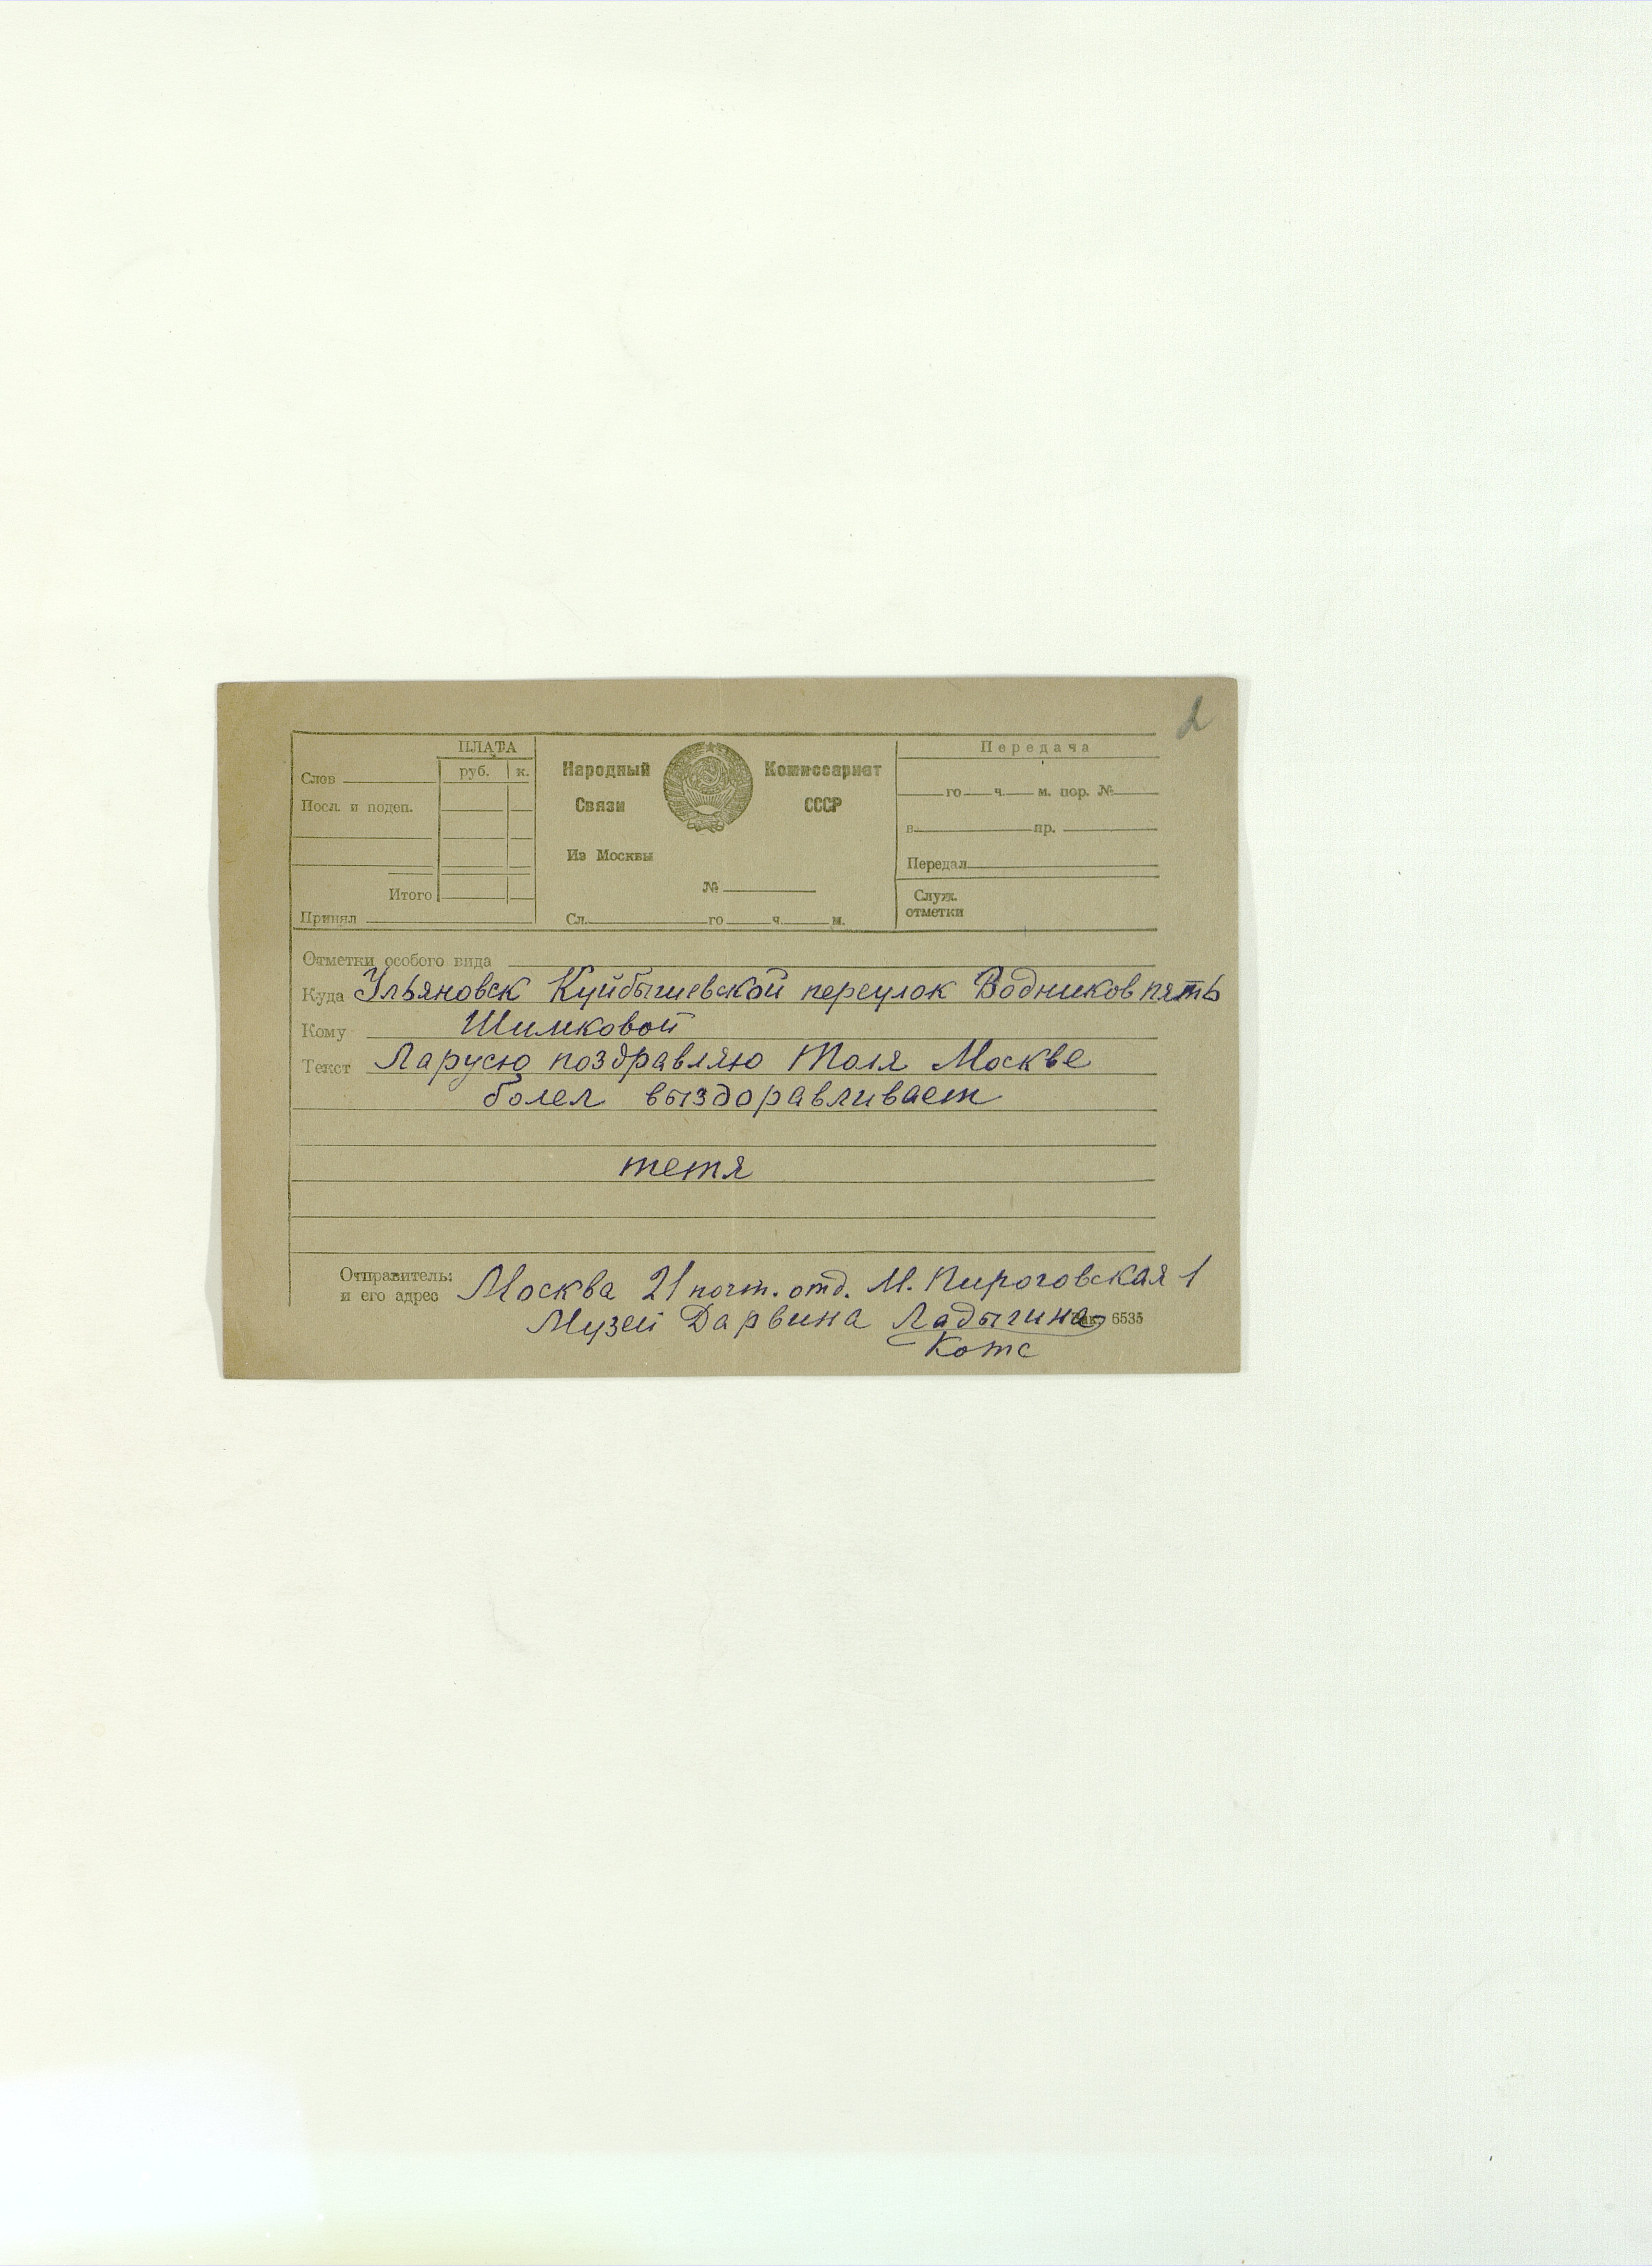 2
ПЛАТА
руб. к.
Слов
Посл. и подеп.
Итого
Принял
Народный Комиссариат
Связи СССР
Из Москвы
№
Сл. го ч. м.
Передача
го ч. м. пор. №
в пр.
Передал
Служ.
отметки
Отметки особого вида
Куда Ульяновск Куйбышевской переулок Водников пять
Кому Шимковой
Текст Ларусю поздравляю Толя Москве
болел выздоравливает
тетя
Отправитель: Москва 21 почт. отд. М. Пироговская 1
и его адрес Музей Дарвина Ладыгина 6535
Котс